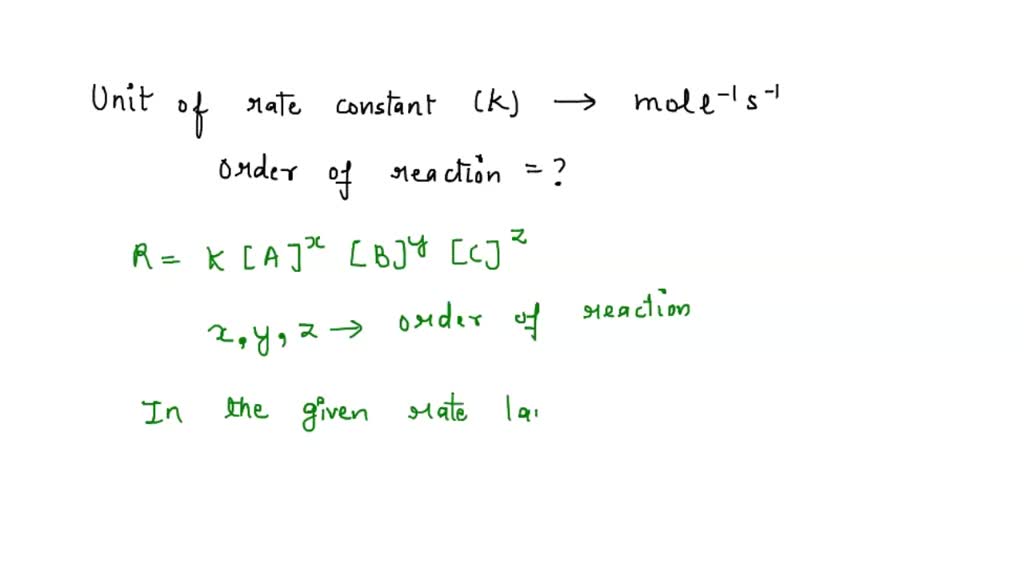 Unit of rate constant (K) → mole⁻¹ s⁻¹
order of reaction = ?
R = K [A]ˣ [B]ʸ [C]ᶻ
x, y, z → order of reaction
In the given rate